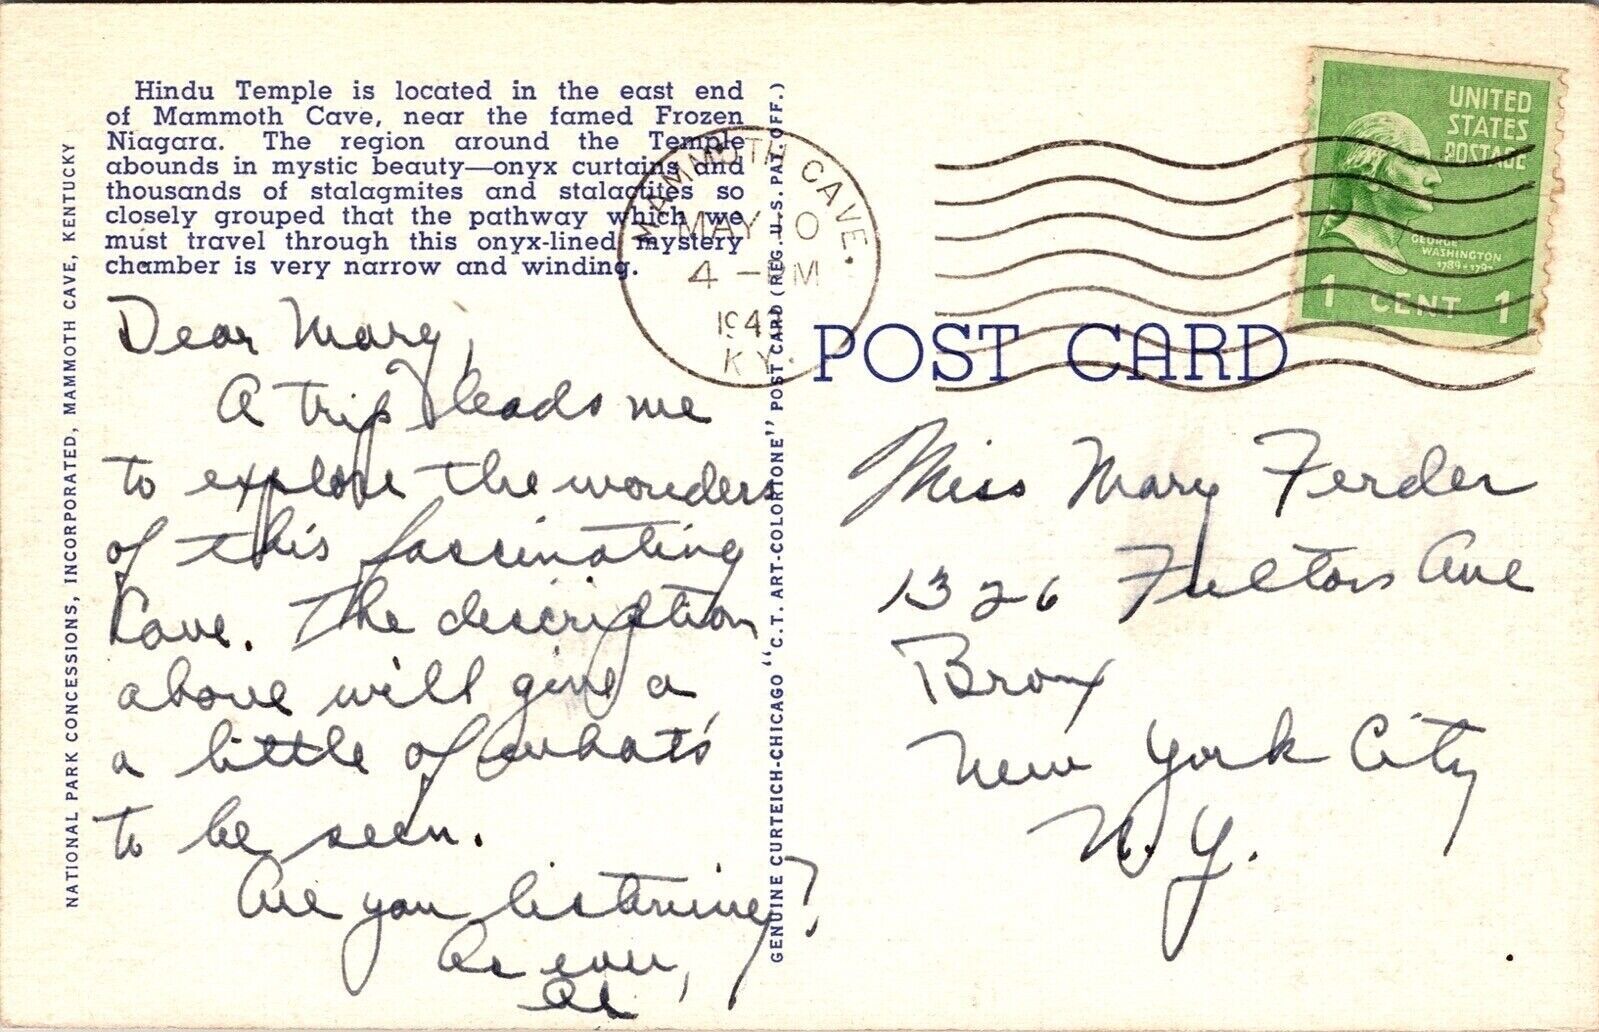 Hindu Temple is located in the east end
of Mammoth Cave, near the famed Frozen
Niagara. The region around the Temple
abounds in mystic beauty—onyx curtains and
thousands of stalagmites and stalactites so
closely grouped that the pathway which we
must travel through this onyx-lined mystery
chamber is very narrow and winding.
NATIONAL PARK CONCESSIONS, INCORPORATED, MAMMOTH CAVE, KENTUCKY
Dear Mary,
A trip leads me
to explore the wonders
of this fascinating
Cave. The description
above will give a
a little of what's
to be seen.
Are you listening?
As ever,
Al
GENUINE CURTEICH-CHICAGO "C.T. ART-COLORTONE" POST CARD (REG. U.S. PAT. OFF.)
MAMMOTH CAVE.
MAY
4 - PM
KY.
UNITED
STATES
POSTAGE
GEORGE
WASHINGTON
1789-1797
1 CENT 1
POST CARD
Miss Mary Ferder
1326 Fulton Ave
Bronx
New York City
N.Y.